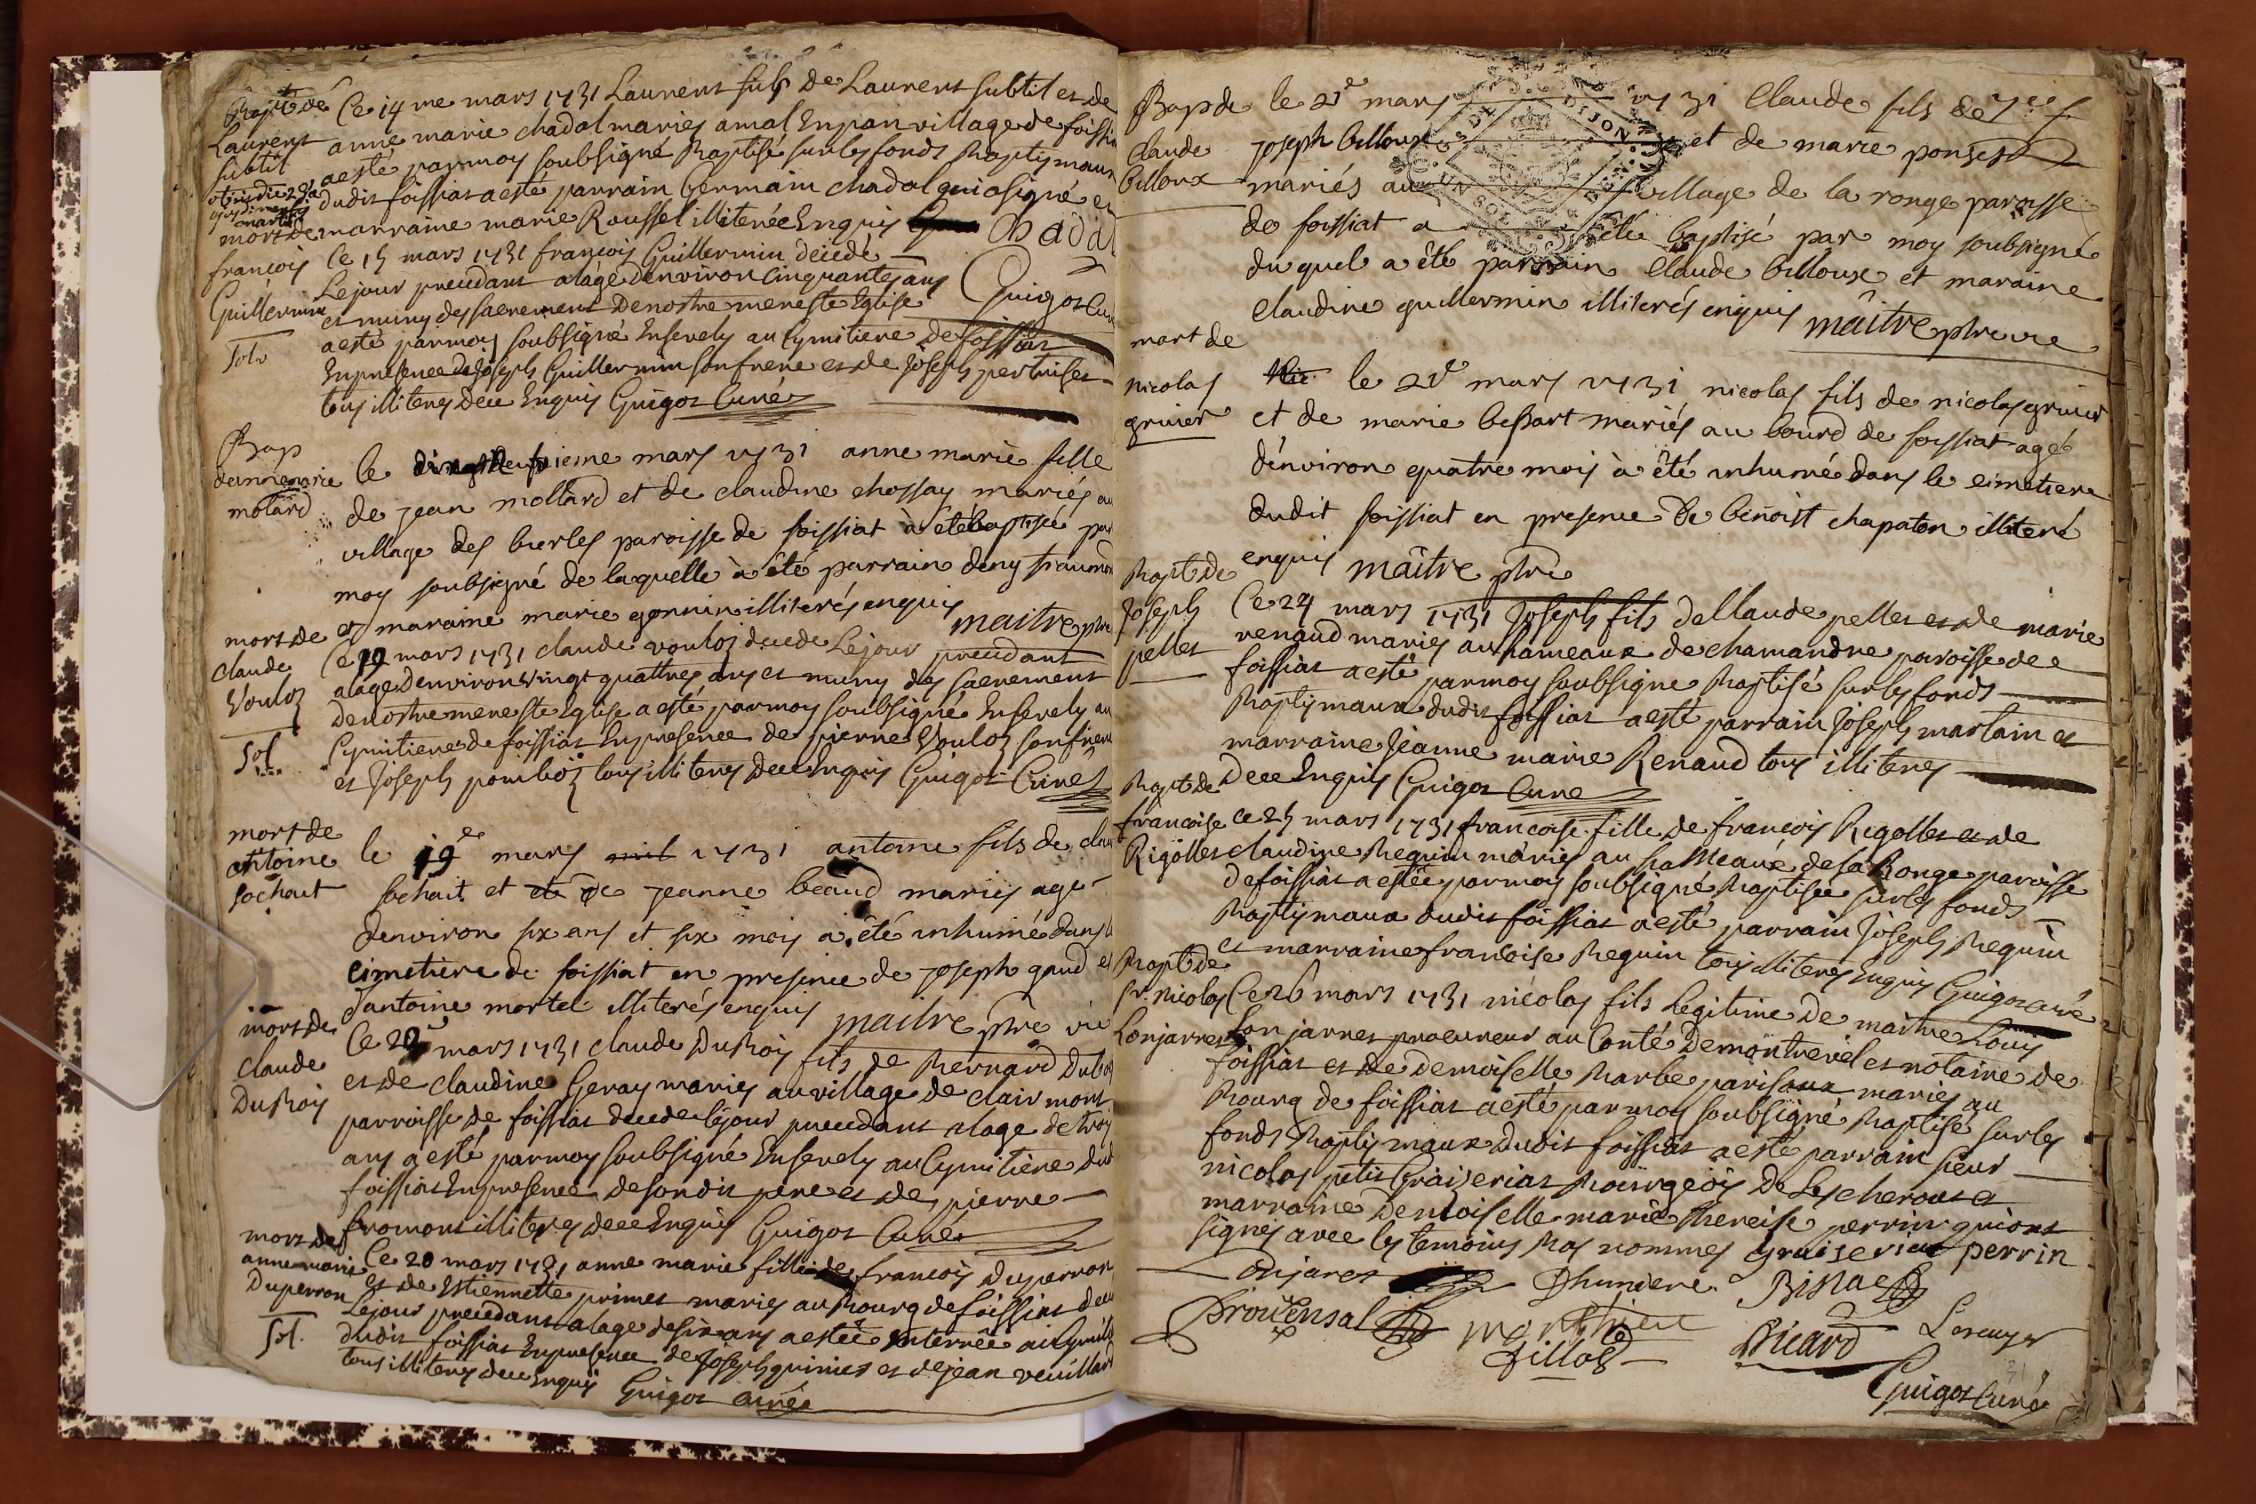 Bapt de
Laurent
subtil
Ce 14 me mars 1731 Laurent fils de Laurent subtil et de
anne marie chadal mariés village de foissia
a esté par moy soubsigné Baptisé sur les fonds Baptismaux
dudit foissiat a esté parrain Germain chadal qui a signé et
marraine marie Roussel illiterée Enquis Chadal
mort de
francois
Guillermin
solv
Ce 15 mars 1731 francois Guillermin décédé
Le jour precedant a lage denviron Cinquantes ans
et muny des sacrement De nostre mere ste Eglise Guigot Curé
a esté par moy soubsigné Ensevely au Cymitiere de foissiat
En presence de Joseph Guillermin son frere et de Joseph pertuiset
tous illiteres de ce Enquis Guigot Curé
Bap
danne marie
molard
le mars 1731 anne marie fille
de jean mollard et de claudine chossay mariés au
village des burles paroisse de foissiat à été baptisée par
moy soubsigné de laquelle à été parrain deny
et maraine marie gonnin illiterés enquis maitre ptre
mort de
claude
vouloz
sol
Ce 19 mars 1731 claude vouloz decede Le jour precedant
a lage denviron vingt quattres ans et muny des sacrement
De nostre mere ste Eglise a esté par moy soubsigné Ensevely au
Cymitiere de foissiat En presence de pierre Vouloz son frere
et Joseph tous illiteres de ce Enquis Guigot Curé
mort de
antoine
sochait
le 19e mars 1731 antoine fils de
sochait et de jeanne beaud mariés agé
denviron six ans et six mois a été inhumé dans le
cimetiere de foissiat en presence de joseph gaud et
d'antoine mortel illiterés enquis maitre ptre vic
mort de
claude
Duboy
Ce 20 mars 1731 claude Duboy fils de Bernard Duboy
et de claudine Geray mariés au village de clairmont
parroisse de foissiat decede le jour precedant a lage de trois
ans a esté par moy soubsigné Ensevely au Cymitiere dud
foissiat En presence de sondit pere et de pierre
fromont illiteres de ce Enquis Guigot Curé
mort de
anne marie
Duperron
sol.
Ce 20 mars 1731 anne marie fille de francois Duperron
et de Estiennette primet mariés au Bourg de foissiat
Le jour precedant a lage de six ans a estée Enterrée au
dudit foissiat En presence de Joseph guinier et de jean veuillard
tous illiteres de ce Enquis Guigot Curé
Bap de
Claude
billoux
le 21e mars 1731 Claude fils de
joseph billoux et de marie ponset
mariés au village de la ronge paroisse
de foissiat a été baptisé par moy soubsigné
du quel a été parrain Claude billoux et maraine
Claudine guillermin illiterés enquis maitre ptre vic
mort de
nicolas
grinier
le 21e mars 1731 nicolas fils de nicolas grinier
et de marie bessart mariés au bourd de foissiat agé
d'environ quatre mois à été inhumé dans le cimetiere
dudit foissiat en presence de benoist chapaton illiteré
enquis maitre ptre
Bapt de
Joseph
pellet
Ce 24 mars 1731 Joseph fils de Claude pellet et de marie
renaud mariés au hameaux de chamandre paroisse de
foissiat a esté par moy soubsigné Baptisé sur les fonds
Baptismaux dudit foissiat a esté parrain Joseph martain et
marraine Jeanne marie Renaud tous illiteres
de ce Enquis Guigot Curé
Bapt de
francoise
Rigollet
ce 25 mars 1731 francoise fille de francois Rigollet et de
claudine Requin mariés au hameaux de la Ronge paroisse
de foissiat a estée par moy soubsigné Baptisée sur les fonds
Baptismaux dudit foissiat a esté parrain Joseph Requin
et marraine francoise Requin tous illiteres Enquis Guigot curé
Bapt de
sr. nicolas
Lonjarret
Ce 26 mars 1731 nicolas fils Legitime De maitre Louis
Lonjarret procureur au Conté De montrevel et notaire de
foissiat et de Demoiselle Barbe parisaux mariés au
Bourg de foissiat a esté par moy soubsigné Baptisé sur les
fonds Baptismaux dudit foissiat a esté parrain sieur
nicolas petit Graizeriat Bourgeois De Lescheroux et
marraine Demoiselle marie therese perrin qui ont
signés avec les temoins Bas nommes Graiseriat perrin
Lonjaret Dhumiere
Prouensal Picard
Guigot Curé